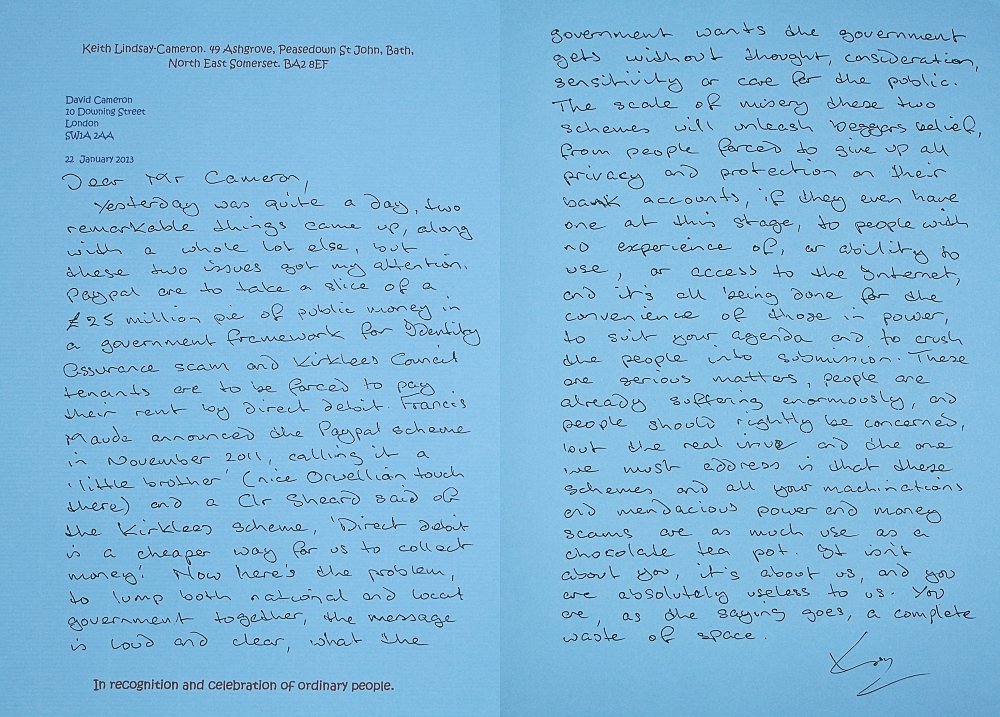 Keith Lindsay-Cameron. 49 Ashgrove, Peasedown St John, Bath,
North East Somerset. BA2 8EF
David Cameron
10 Downing Street
London
SW1A 2AA
22 January 2013
Dear Mr Cameron,
Yesterday was quite a day, two
remarkable things came up, along
with a whole lot else, but
these two issues got my attention.
Paypal are to take a slice of a
£25 million pie of public money in
a government framework for Identity
assurance scam and Kirklees Council
tenants are to be forced to pay
their rent by direct debit. Francis
Maude announced the Paypal scheme
in November 2011, calling it a
'little brother' (nice Orwellian touch
there) and a Clr Sheard said of
the Kirklees scheme, 'Direct debit
is a cheaper way for us to collect
money.' Now here's the problem,
to lump both national and local
government together, the message
is loud and clear, what the
In recognition and celebration of ordinary people.
government wants the government
gets without thought, consideration,
sensitivity or care for the public.
The scale of misery these two
schemes will unleash beggars belief,
from people forced to give up all
privacy and protection on their
bank accounts, if they even have
one at this stage, to people with
no experience of, or ability to
use, or access to the Internet,
and it's all being done for the
convenience of those in power,
to suit your agenda and to crush
the people into submission. These
are serious matters, people are
already suffering enormously, and
people should rightly be concerned,
but the real issue and the one
we must address is that these
schemes and all your machinations
and mendacious power and money
scams are as much use as a
chocolate tea pot. It isn't
about you, it's about us, and you
are absolutely useless to us. You
are, as the saying goes, a complete
waste of space.